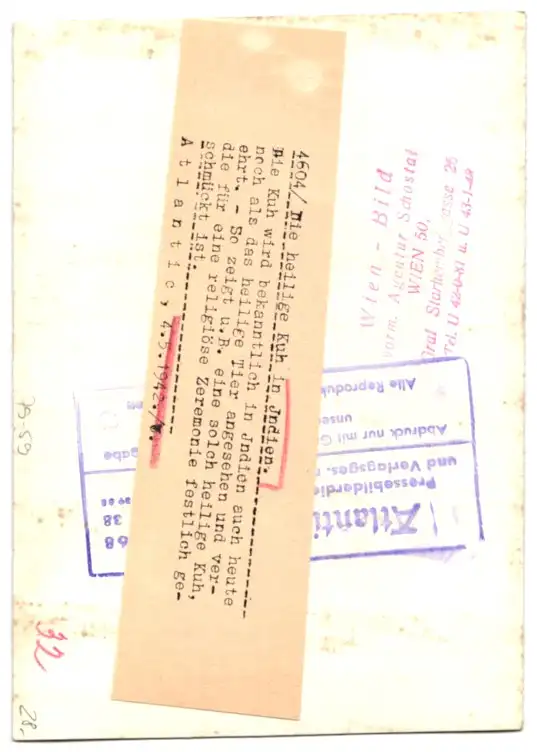 4604/ Die heilige Kuh in Jndien.
Die Kuh wird bekanntlich in Jndien auch heute
noch als das heilige Tier angesehen und ver-
ehrt. - So zeigt u.B. eine solch heilige Kuh,
die für eine religiöse Zeremonie festlich ge-
schmückt ist.
Atlantic, 4.5.1942/
Wien - Bild
vorm. Agentur Schostal
WIEN 50,
Graf Starhemberggasse 26
Tel. U 42-0-41 u. U 45-1-48
Atlanti
Pressebilderdie
und Verlagsges.
Abdruck nur mit G
unse
Alle Reproduk
gabe
68
38
32
28.-